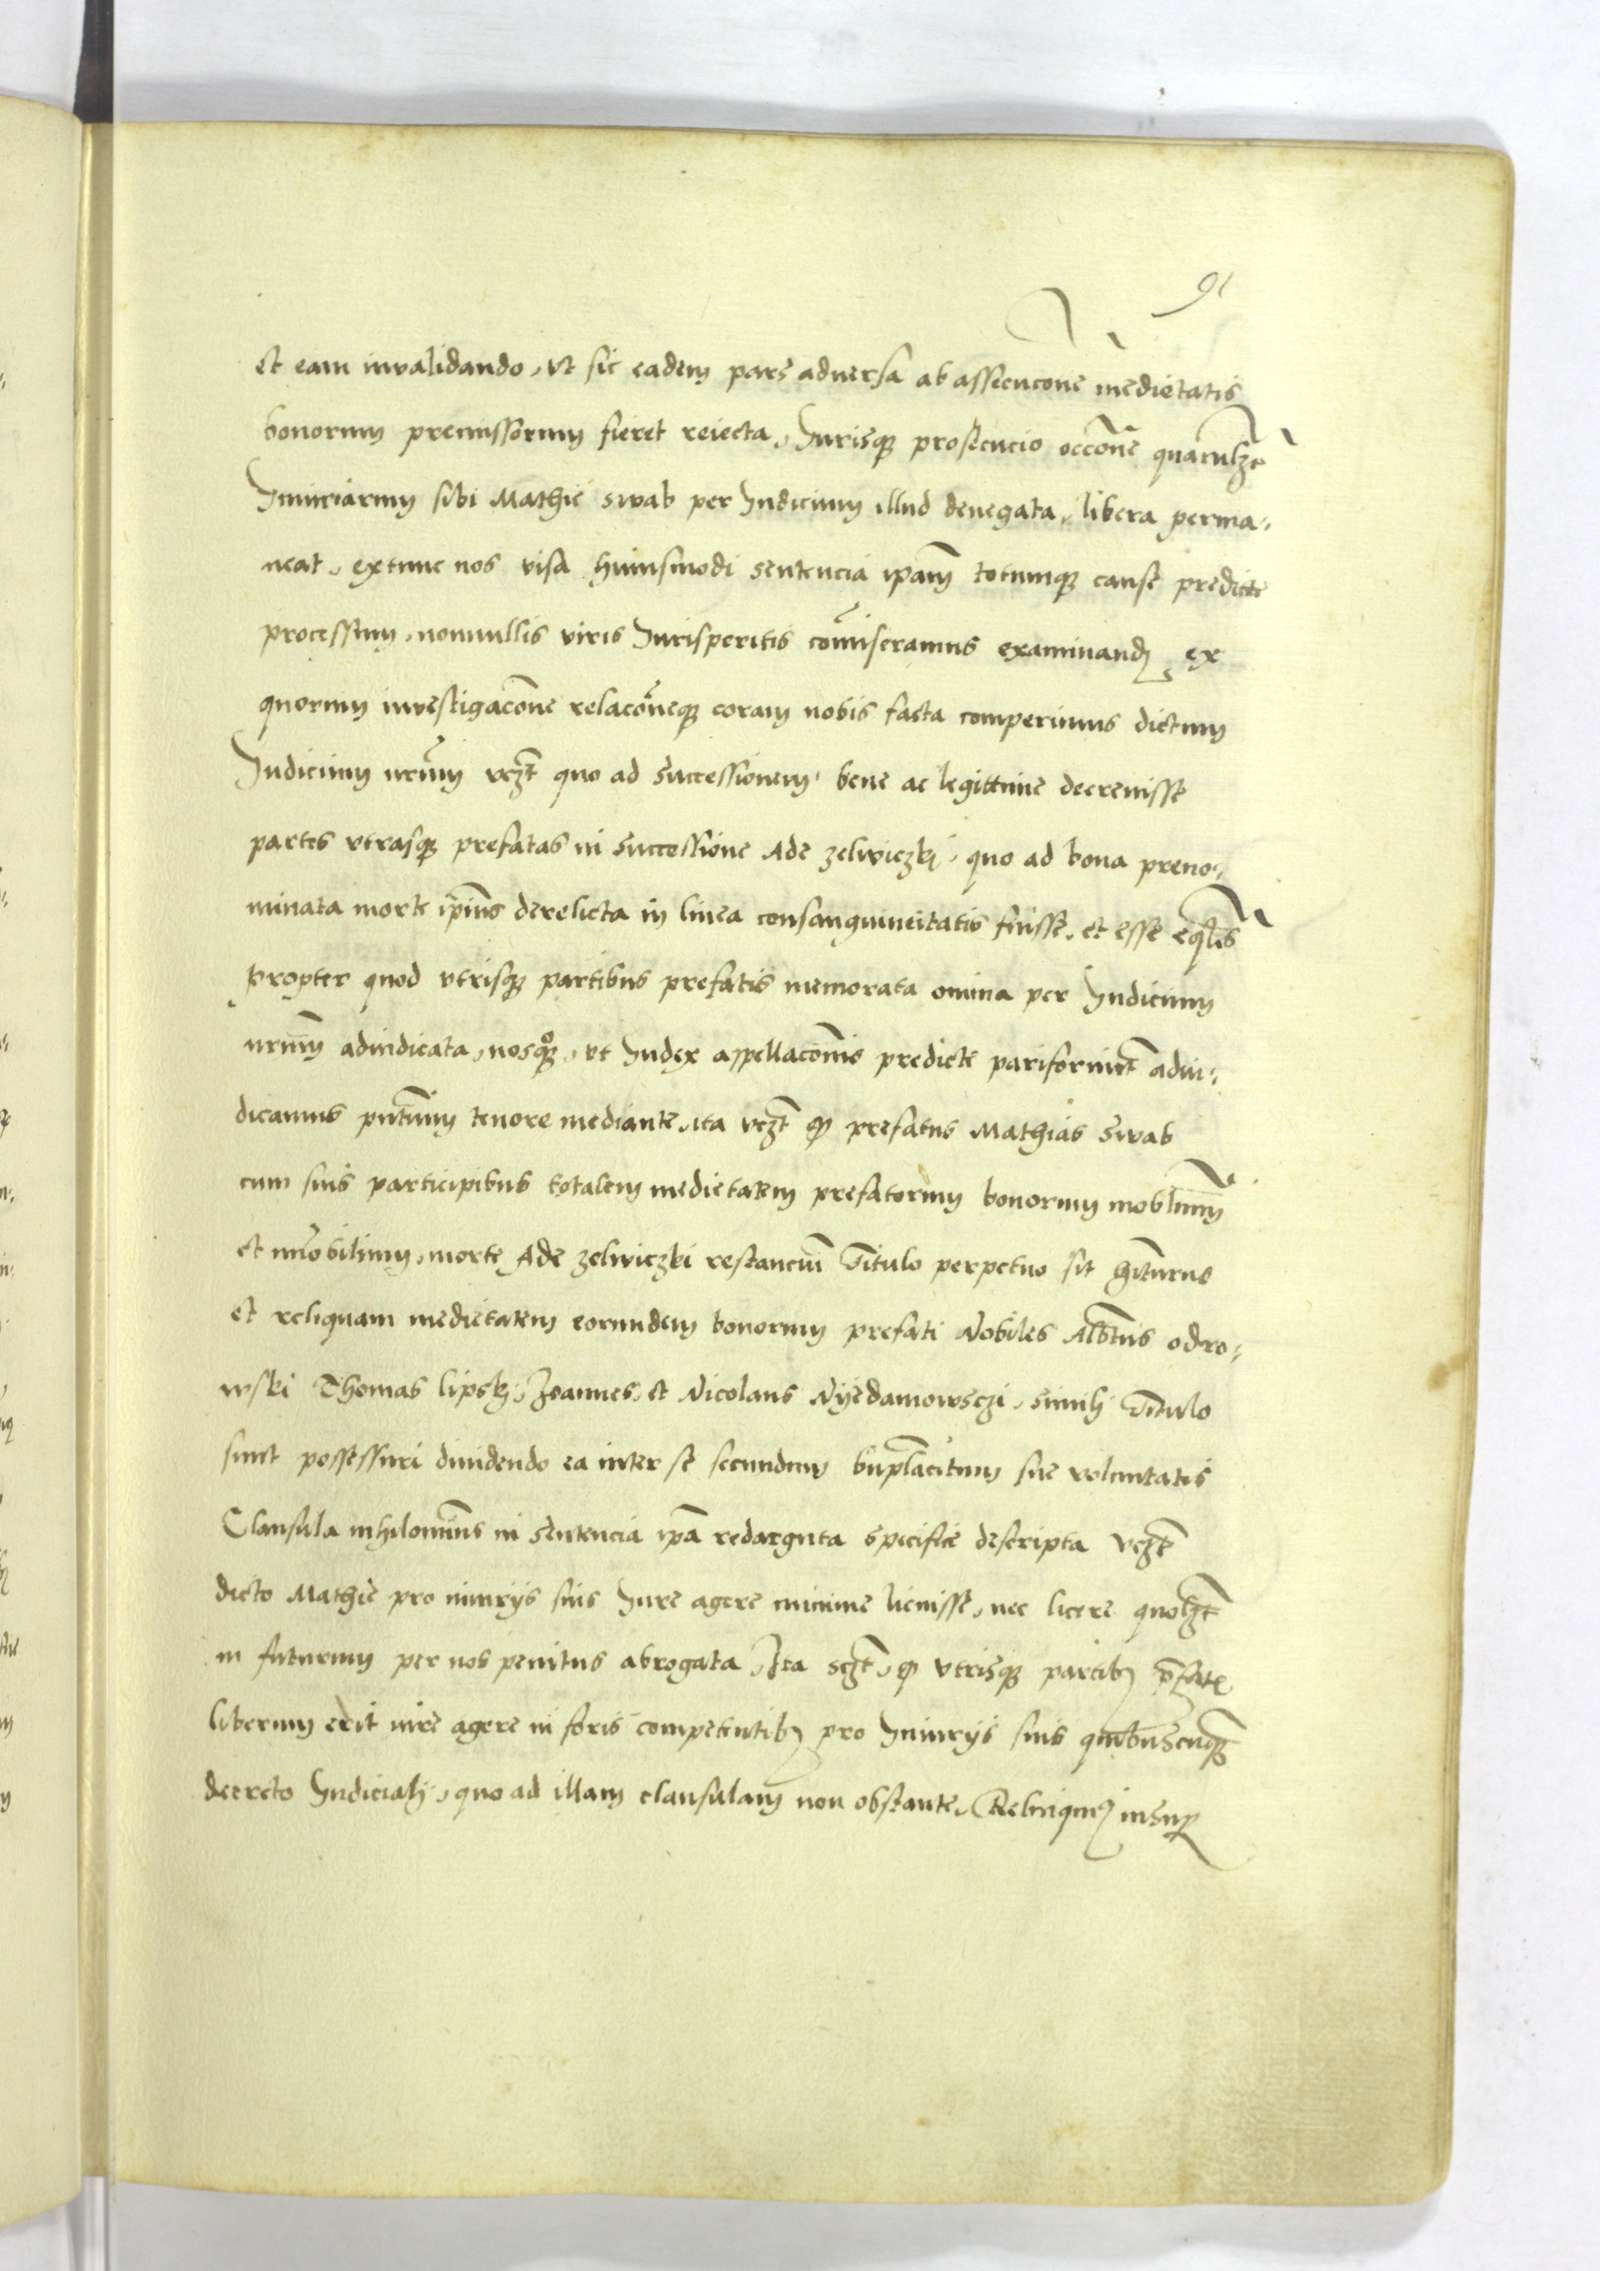 91
et eam invalidando, ut sic eadem pars adversa ab assecucone medietatis
bonorum premissorum fieret reiecta, Jurisque prosecucio occone quarumlzt
Iniuriarum sibi Mathie swab per Judicium illud denegata, libera perma-
neat, extunc nos visa huiusmodi sentencia ipam totumque cause predicte
processum, nonnullis viris Jurisperitis comiseramus examinand, ex
quorum investigacone relaconeque coram nobis facta comperimus dictum
Judicium nrum vczt quo ad successionem bene ac legittime decrevisse
partes utrasque prefatas in successione Ade zelwiczki, quo ad bona preno-
minata morte ipius derelicta in linea consanguineitatis fuisse, et esse eqles
propter quod utrisque partibus prefatis memorata omnia per Judicium
nrum adiudicata, nosque, ut Judex appellaconis predicte pariformit adiu-
dicamus pntium tenore mediante, ita vczt q prefatus Mathias swab
cum suis participibus totalem medietatem prefatorum bonorum mobilium
et imobilium, morte Ade zelwiczki restancium Titulo perpetuo sit hiturus
et reliquam medietatem eorundem bonorum prefati Nobiles Albtus odro-
wski Thomas lipski, Joannes, et Nicolaus Nyedamowsczi, simili Titulo
sunt possessuri dividendo ea inter se secundum bnplacitum sue voluntatis
Clausula nihilominus in sentencia ipa redarguta specifice descripta vczt
dicto Mathie pro iniuriis suis Jure agere minime licuisse, nec licere quolzt
in futurum per nos penitus abrogata, Ita sczt, q utrisque partib pfat
liberum erit iure agere in foris competentib pro Iniuriis suis quibuscunque
decreto Judiciali, quo ad illam clausulam non obstante, Relinquim insup